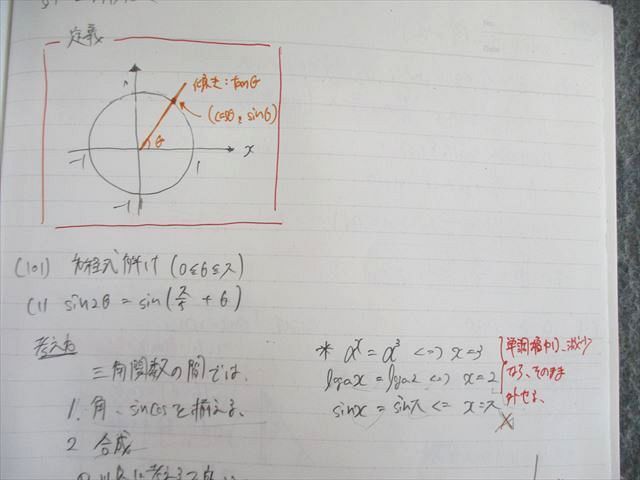 定義
傾き：tanθ
(cosθ, sinθ)
θ
-1
1
x
-1
(101) 方程式解け (0≦θ≦π)
(1) sin2θ = sin(π/5 + θ)
考え方
三角関数の問では、
1. 角、sin cosを揃える、
2 合成
* a^x = a^3 <=> x=3
log a x = log a 2 <=> x=2
sin x = sin π <= x=π
単調増加、減少
なら、そのまま
外せる、
×